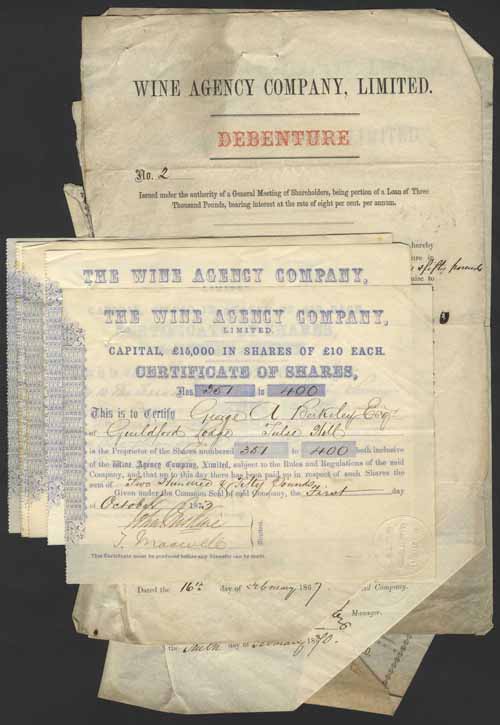 WINE AGENCY COMPANY, LIMITED.
DEBENTURE
No. 2
Issued under the authority of a General Meeting of Shareholders, being portion of a Loan of Three
Thousand Pounds, bearing interest at the rate of eight per cent. per annum.
hereby
fifty pounds
THE WINE AGENCY COMPANY,
THE WINE AGENCY COMPANY,
LIMITED.
CAPITAL, £15,000 IN SHARES OF £10 EACH.
CERTIFICATE OF SHARES,
Nos. 351 to 400
This is to Certify George A Berkeley Esqr
of Guildford Lodge Tulse Hill
is the Proprietor of the Shares numbered 351 to 400 both inclusive
of the Wine Agency Company, Limited, subject to the Rules and Regulations of the said
Company, and that up to this day there has been paid up in respect of such Shares
the sum of Two Hundred & Fifty Pounds
Given under the Common Seal of said Company, the First day
of October 1863
T. Maxwell
This Certificate must be produced before any Transfer can be made.
Dated the 16th day of February 1867. said Company.
Manager.
the day of February 1870.